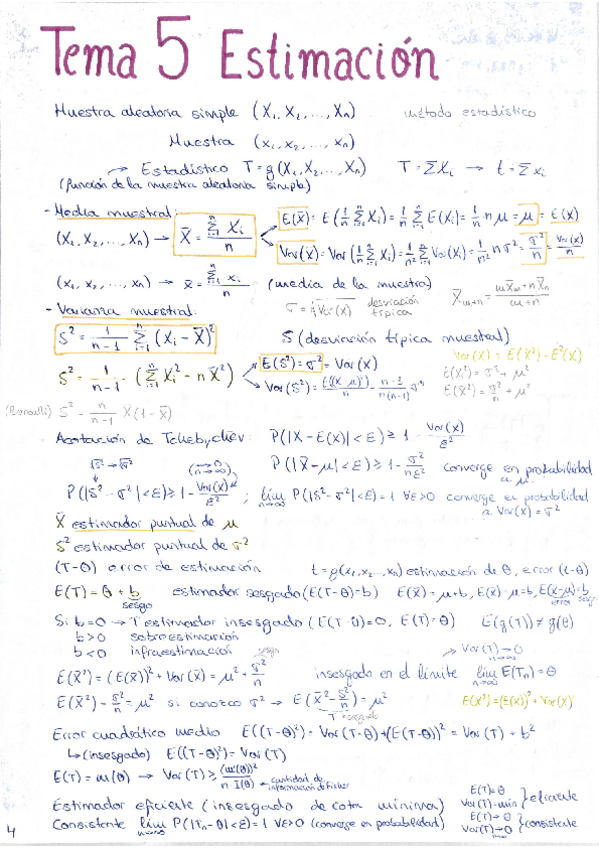 Tema 5 Estimación
Muestra aleatoria simple (X₁, X₂, ..., Xₙ) método estadístico
Muestra (x₁, x₂, ..., xₙ)
→ Estadístico T = g(X₁, X₂, ..., Xₙ) T = ΣXᵢ → t = Σxᵢ
(función de la muestra aleatoria simple)
- Media muestral:
(X₁, X₂, ..., Xₙ) → X̄ = Σᵢ₌₁ⁿ Xᵢ / n
E(X̄) = E(1/n Σᵢ₌₁ⁿ Xᵢ) = 1/n Σᵢ₌₁ⁿ E(Xᵢ) = 1/n nμ = μ = E(X)
Var(X̄) = Var(1/n Σᵢ₌₁ⁿ Xᵢ) = 1/n² Σᵢ₌₁ⁿ Var(Xᵢ) = 1/n² nσ² = σ²/n = Var(X)/n
(x₁, x₂, ..., xₙ) → x̄ = Σᵢ₌₁ⁿ xᵢ / n (media de la muestra) X̄ₘ₊ₙ = (mX̄ₘ + nX̄ₙ)/(m+n)
σ = √Var(X) desviación típica
- Varianza muestral:
S² = 1/(n-1) Σᵢ₌₁ⁿ (Xᵢ - X̄)² S (desviación típica muestral)
Var(X) = E(X²) - E²(X)
S² = 1/(n-1) · (Σᵢ₌₁ⁿ Xᵢ² - nX̄²) E(S²) = σ² = Var(X) E(X²) = σ² + μ²
Var(S²) = E((X-μ)⁴)/n - (n-3)/(n(n-1)) σ⁴ E(X̄²) = σ²/n + μ²
(Bernoulli) S² = n/(n-1) X̄(1-X̄)
Acotación de Tchebychev: P(|X - E(X)| < ε) ≥ 1 - Var(X)/ε²
P(|X̄ - μ| < ε) ≥ 1 - σ²/nε² converge en probabilidad a μ.
P(|S² - σ²| < ε) ≥ 1 - Var(X)/ε² ; lím n→∞ P(|S² - σ²| < ε) = 1 ∀ε>0 converge en probabilidad
a Var(X) = σ²
X̄ estimador puntual de μ
S² estimador puntual de σ²
(T-θ) error de estimación t = g(x₁, x₂, ..., xₙ) estimación de θ, error (t-θ)
E(T) = θ + b estimador sesgado (E(T-θ) = b) E(X̄) = μ+b, E(X̄) - μ = b, E(X̄-μ) = b
sesgo error sesgo
Si b=0 → T estimador insesgado (E(T-θ) = 0, E(T) = θ) E(g(T)) ≠ g(θ)
b>0 sobreestimación
b<0 infraestimación → Var(T) → 0
E(X̄²) = (E(X̄))² + Var(X̄) = μ² + σ²/n sesgo insesgado en el límite lím n→∞ E(Tₙ) = θ
E(X̄²) - σ²/n = μ² si conozco σ² → E(X̄² - σ²/n) = μ² E(X²) = (E(X))² + Var(X)
T insesgado
Error cuadrático medio E((T-θ)²) = Var(T-θ) + (E(T-θ))² = Var(T) + b²
↳ (insesgado) E((T-θ)²) = Var(T)
E(T) = m(θ) → Var(T) ≥ (m'(θ))² / n·I(θ) ← cantidad de información de Fisher
Estimador eficiente (insesgado de cota mínima) E(T)=θ Var(T)=mín } eficiente
Consistente lím n→∞ P(|Tₙ-θ| < ε) = 1 ∀ε>0 (converge en probabilidad) E(T)→θ Var(T)→0 } consistente
4